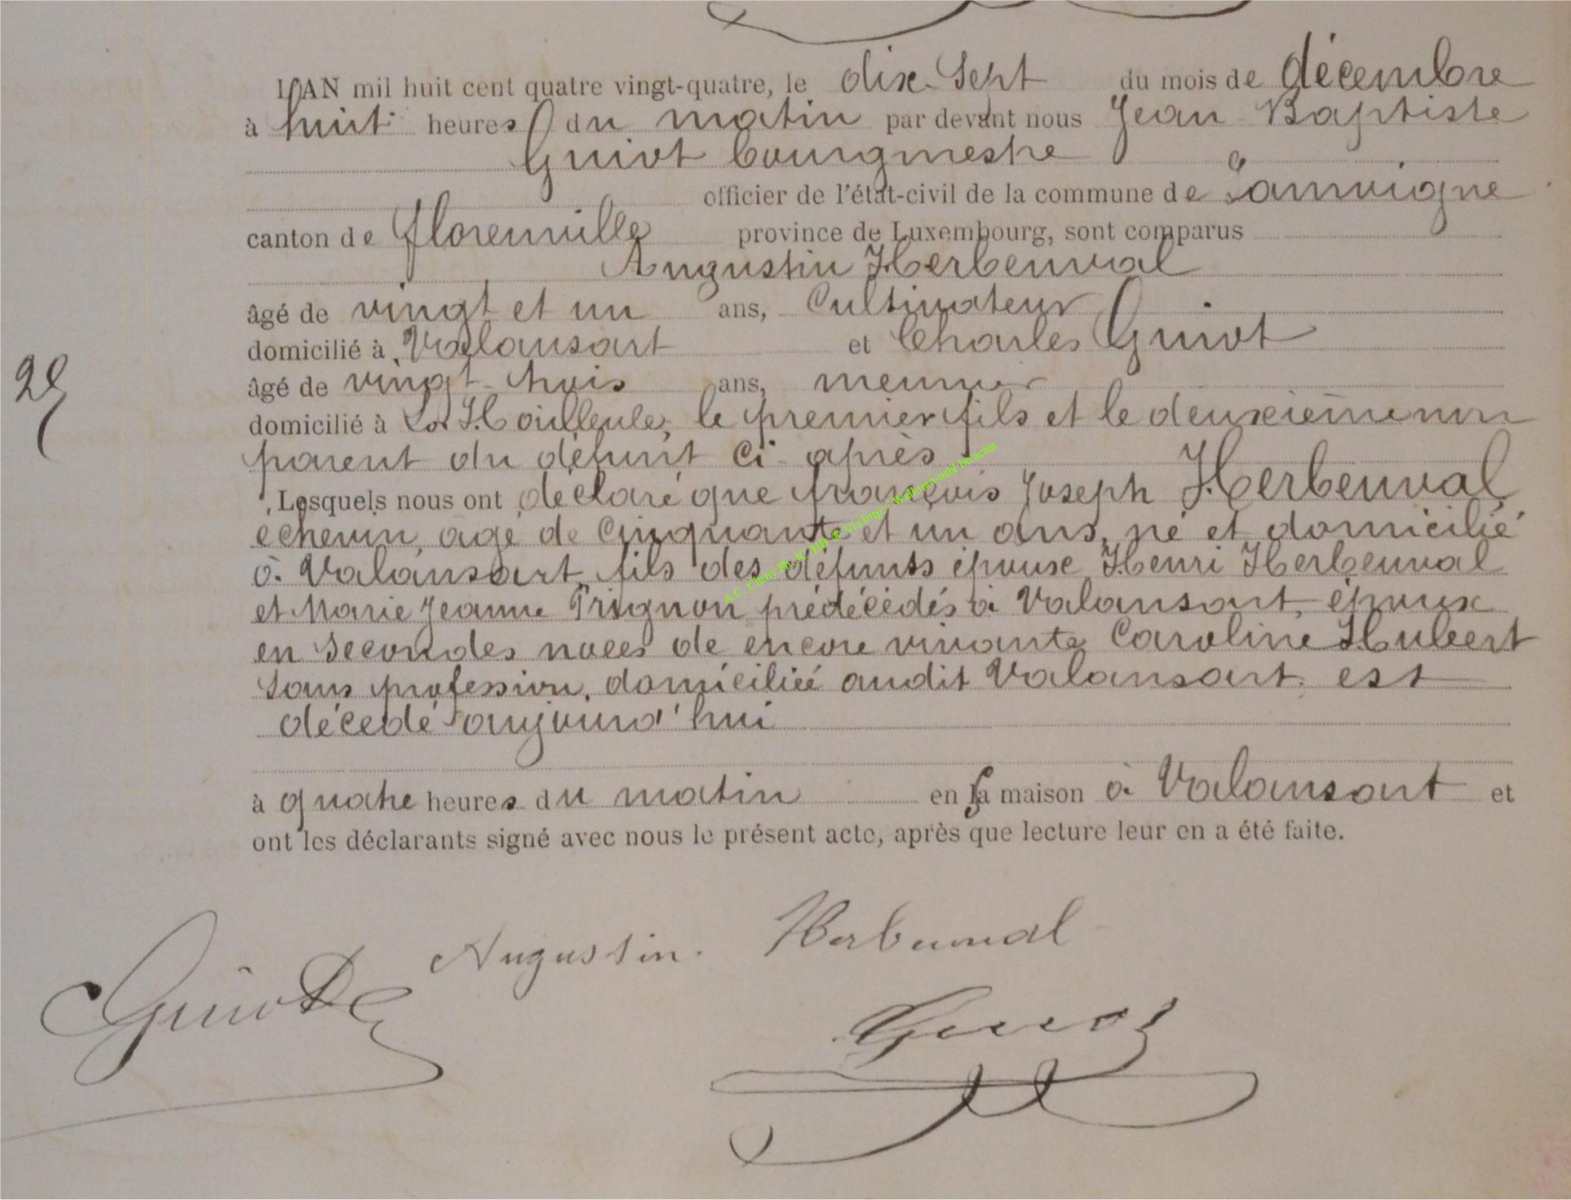 L'AN mil huit cent quatre vingt-quatre, le dix Sept du mois de décembre
à huit heures du matin par devant nous Jean Baptiste
Guiot bourgmestre
officier de l'état-civil de la commune de Lamuigne
canton de florenville province de Luxembourg, sont comparus
Augustin Herbeuval
âgé de vingt et un ans, Cultivateur
domicilié à Valansart et Charles Guiot
âgé de vingt-trois ans, meunier
domicilié à La Hailleule, le premier fils et le deuxième non
parent du défunt ci-après
Lesquels nous ont déclaré que françois Joseph Herbeuval
échevin, agé de Cinquante et un ans, né et domicilié
à Valansart, fils des défunts époux Henri Herbeuval
et Marie Jeanne Prignon prédécédés à Valansart, époux
en secondes noces de encore vivante Caroline Hubert
sans profession, domiciliée audit Valansart, est
décédé aujourd'hui
à quatre heures du matin en sa maison à Valansart et
ont les déclarants signé avec nous le présent acte, après que lecture leur en a été faite.
Augustin. Herbeuval
Guiot
Guiot